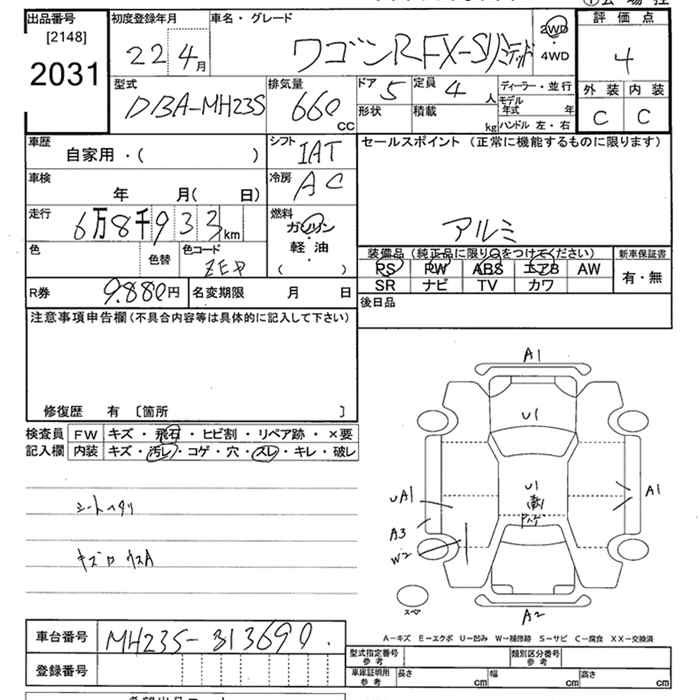 出品番号 初度登録年月 車名・グレード 2WD 評価点
[2148] 22 4月 ワゴンR FX-Sリミテッド 4WD 4
2031 型式 排気量 ドア 5 定員 4 人 ディーラー・並行 外装 内装
DBA-MH23S 660 CC 形状 積載 kg モデル年式 年 C C
ハンドル 左・右
車歴 シフト IAT セールスポイント (正常に機能するものに限ります)
自家用・( )
車検 冷房 AC
年 月( 日)
走行 燃料 アルミ
6万8千933km ガソリン
軽・油
( )
色 色替 色コード 装備品(純正品に限り○をつけてください) 新車保証書
ZEP PS PW ABS エアB AW 有・無
R券 9.880円 名変期限 月 日 SR ナビ TV カワ
後日品
注意事項申告欄(不具合内容等は具体的に記入して下さい)
修復歴 有 〔箇所 〕
検査員 FW キズ・飛石・ヒビ割・リペア跡・×要
記入欄 内装 キズ・汚レ・コゲ・穴・スレ・キレ・破レ
A1
U1
U1
UA1 A1
A3
W2
シートヘタリ
スペア
A2
A-キズ E-エクボ U-凹み W-補修跡 S-サビ C-腐食 XX-交換済
車台番号 MH23S-313690.
型式指定番号 参考 類別区分番号 参考
登録番号 車庫証明用 参考 長さ cm 幅 cm 高さ cm